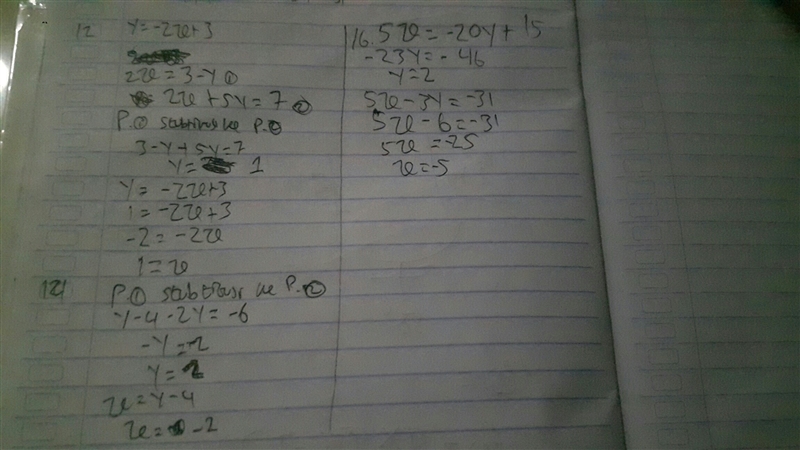 12 y = -2x + 3
2x = 3 - y ①
2x + 5y = 7 ②
P.① ke P.②
3 - y + 5y = 7
y = 1
y = -2x + 3
1 = -2x + 3
-2 = -2x
1 = x
P.① ke P.②
y - 4 - 2y = -6
-y = -2
y = 2
x = y - 4
x = -2
16. 5x = -20y + 15
-23y = -46
y = 2
5x - 3y = -31
5x - 6 = -31
5x = -25
x = -5